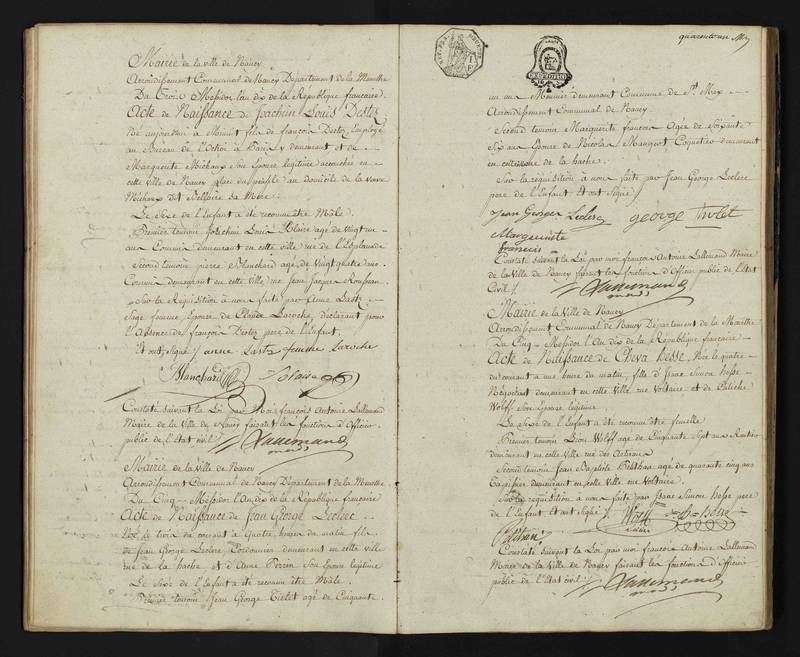 Mairie de la ville de Nancy
Arrondissement Communal de Nancy Département de la Meurthe
Du Trois Messidor l'an dix de la République francaise
Acte de Naissance de Joachim Louis Destez
Né aujourdhui à Minuit fils de françois Destez, Employé
au Bureau de l'Octroi à Paris y demeurant et de
Marguerite Michaux Son Epouse légitime accouchée en
cette ville de Nancy place du peuple au Domicile de la veuve
Michaux dit Bellaire Sa Mère.
Le Sexe de l'Enfant a été reconnu être Mâle.
Premier temoin Joachim Louis Blaise agé de vingt un
ans Commis demeurant en cette ville rue de l'Esplanade
Second temoin pierre Blanchard agé de Vingt quatre ans
Commis demeurant en cette Ville rue Jean Jacques Rousseau.
Sur la Réquisition à nous faite par Anne Lastz
Sage femme, Epouse de Claude Laroche, déclarant pour
l'absence de françois Destez pere de l'Enfant.
Et ont, Signé / anne Lastz femme Laroche
Blanchard
Constaté suivant la Loi par Moi françois Antoine Lallemand
Maire de la Ville de Nancy faisant les fonctions d'Officier
public de l'Etat civil / Lallemand
Mairie de la Ville de Nancy
Arrondissement Communal de Nancy Département de la Meurthe
Du Cinq Messidor l'An dix de la République francaise
Acte de Naissance de Jean George Leclerc
Né, le trois du courant à Quatre heures du matin fils
de Jean George Leclerc Cordonnier demeurant en cette ville
rue de la hache et d'Anne Perrin Son Epouse légitime
Le Sexe de l'Enfant a été reconnu être Mâle.
Premier temoin Jean George Tiolet agé de Cinquante
quarante un
un ans Meunier demeurant Commune de St Max
Arrondissement Communal de Nancy.
Second temoin Marguerite francois Agée de Soixante
Six ans Epouse de Nicolas Mangeot Coquetier demeurant
en cette rue de la hache.
Sur la réquisition à nous faite par Jean George Leclerc
pere de l'Enfant Et ont Signé /
Jean George Leclerc george tiolet
Marguerite
francois
Constaté suivant la Loi par moi françois Antoine Lallemand Maire
de la Ville de Nancy faisant les fonctions d'Officier public de l'Etat
Civil / Lallemand
Mairie de la Ville de Nancy
Arrondissement Communal de Nancy Département de la Meurthe
Du Cinq Messidor l'An dix de la République francaise
Acte de Naissance de Cheva hesse, Née le quatre
du courant à une heure du matin, fille d'Isaac Simon hesse
Négociant demeurant en cette Ville rue Voltaire et de
Wolff Son Epouse légitime.
Le Sexe de l'Enfant a été reconnu être femelle
Premier temoin Léon Wolff agé de Cinquante Sept ans Rentier
demeurant en cette Ville rue des Artisans
Second temoin Jean Baptiste agé de quarante cinq ans
Tapissier demeurant en cette Ville rue Voltaire.
Sur la réquisition à nous faite par Isaac Simon hesse pere
de l'Enfant et ont Signé /.
Constaté suivant la Loi par moi francois Antoine Lallemand
Maire de la Ville de Nancy faisant les fonctions d'Officier
public de l'Etat civil / Lallemand